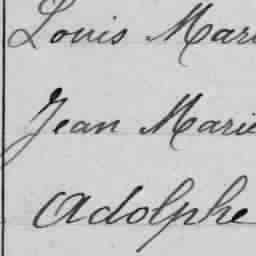 Louis Mari
Jean Marie
Adolphe